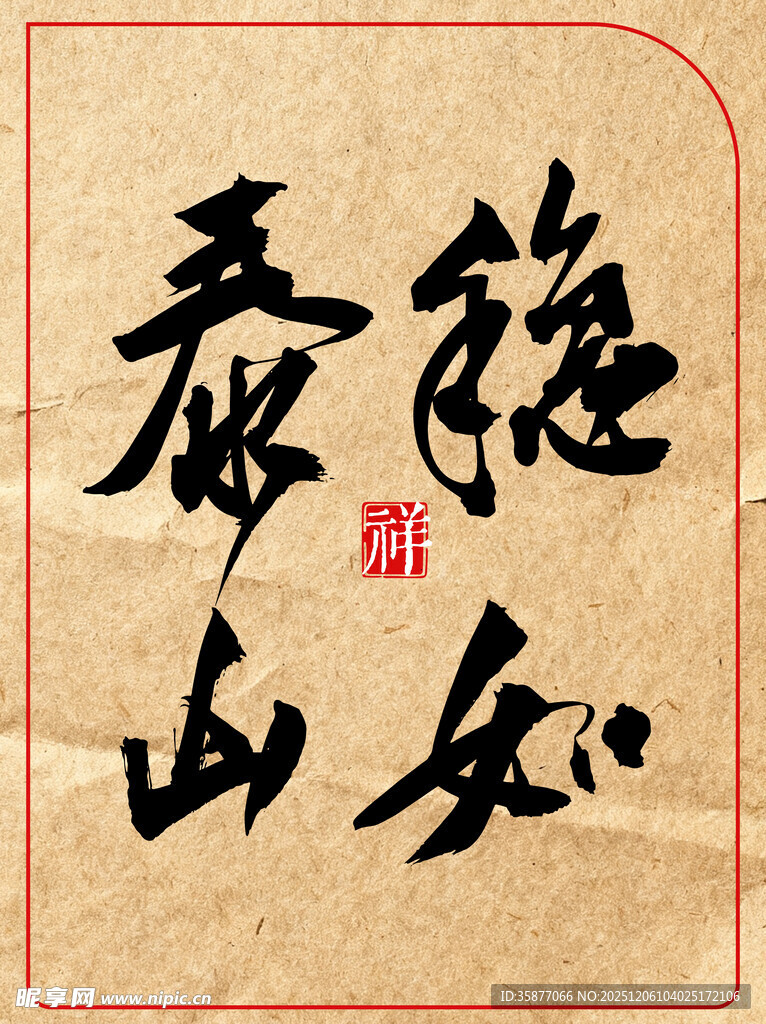 稳如
泰山
祥
昵享网 www.nipic.cn
ID:35877066 NO:20251206104025172106